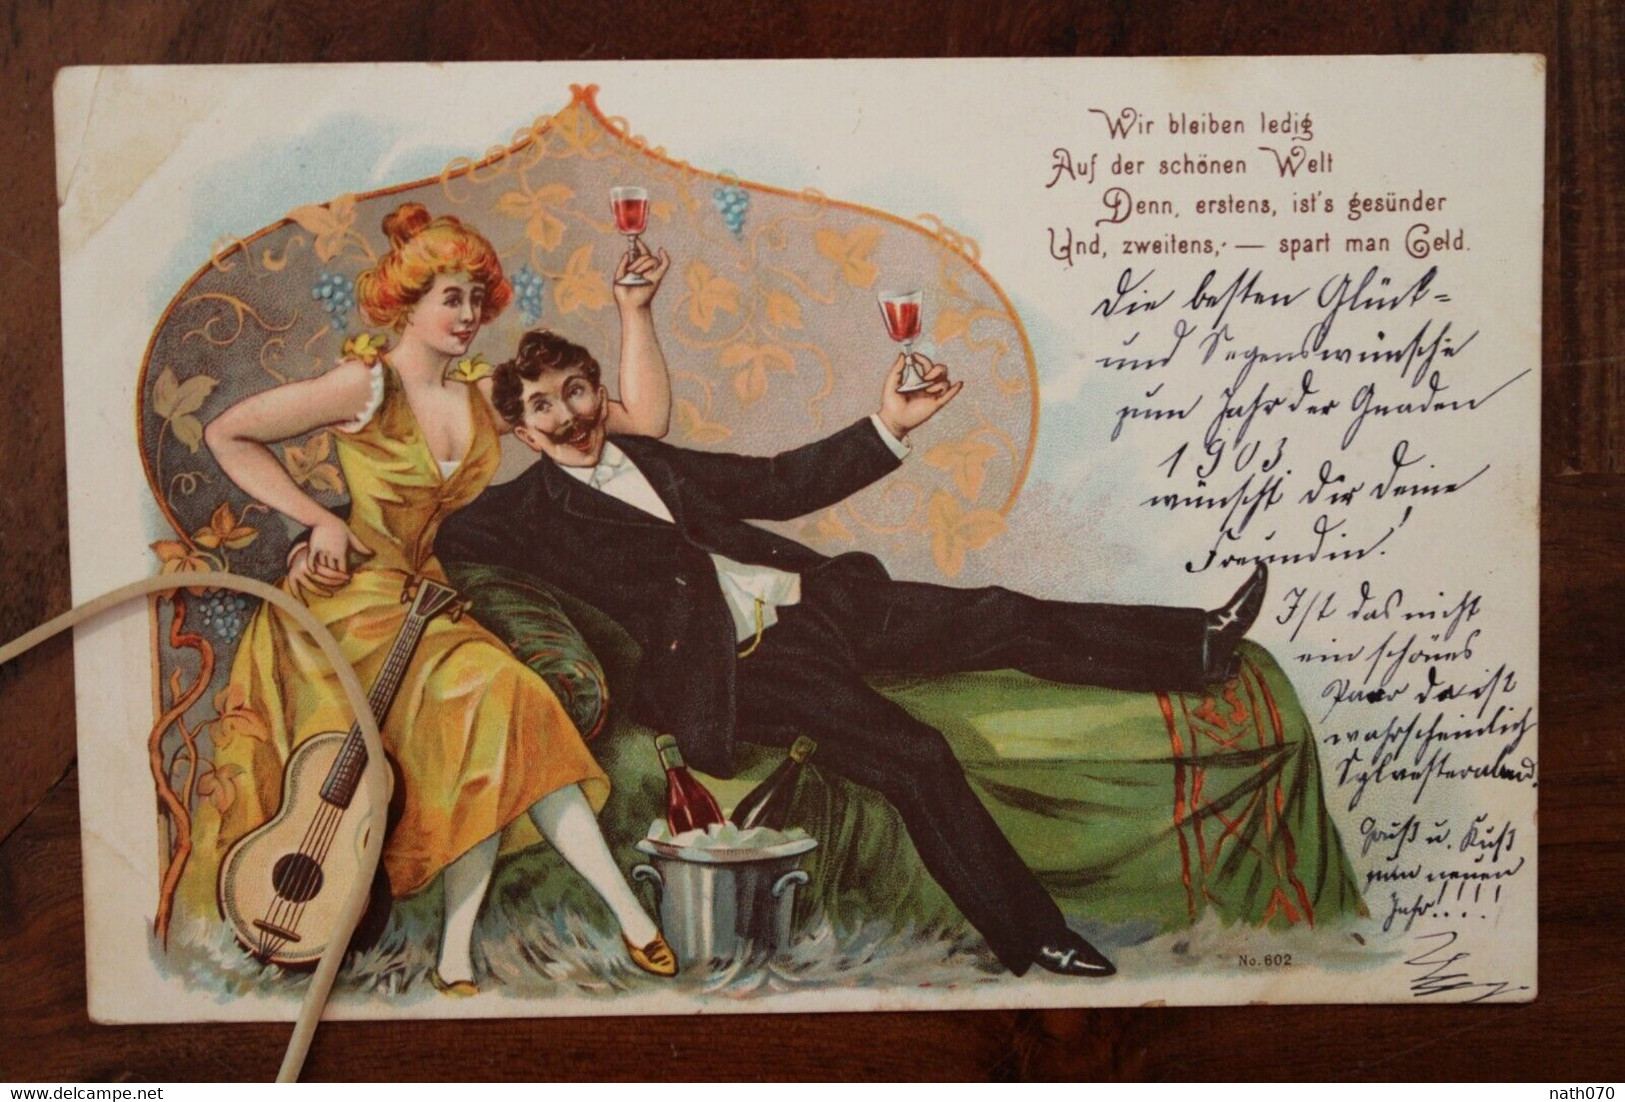 Wir bleiben ledig
Auf der schönen Welt
Denn, erstens, ist's gesünder
Und, zweitens,- — spart man Geld.
Die besten Glück=
und Segenswünsche
zum Jahr der Gnaden
1903.
wünscht Dir Deine
Freundin!
Ist das nicht
ein schönes
Paar da ist
wahrscheinlich
Sylvesterabend.
Gruß u. Kuß
zum neuen
Jahr!!!!!
No. 602
delcampe.net
nath070